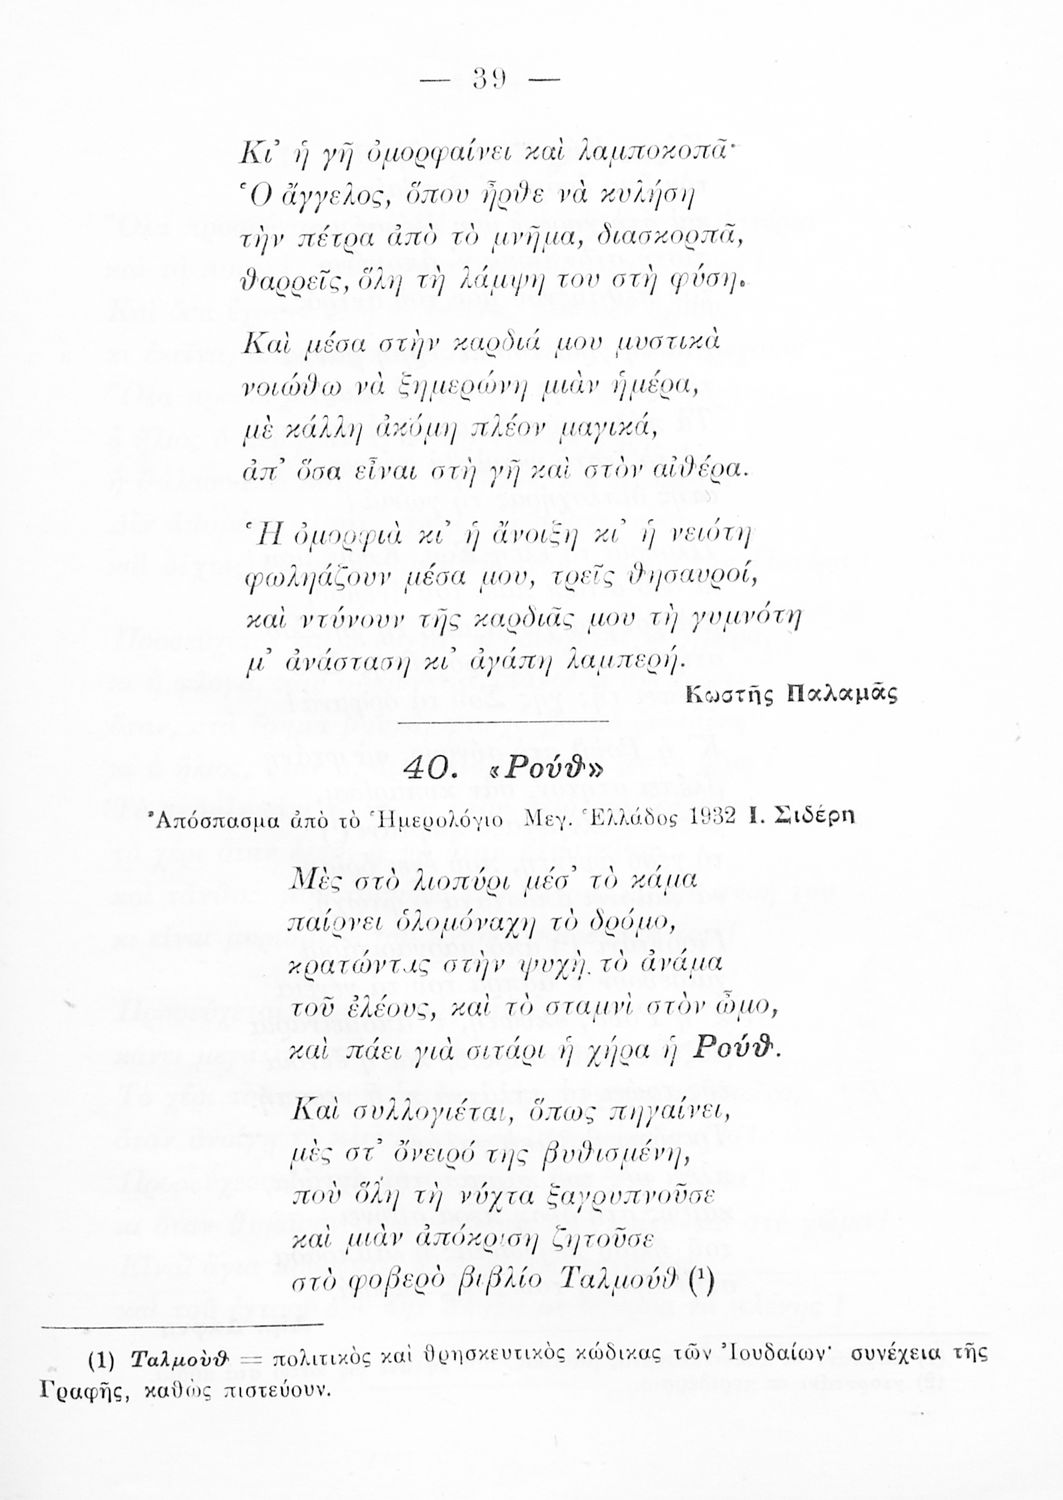 — 39 —
Κι’ ἡ γῆ ὀμορφαίνει καὶ λαμποκοπᾶ·
Ὁ ἄγγελος, ὅπου ἦρθε νὰ κυλήσῃ
τὴν πέτρα ἀπὸ τὸ μνῆμα, διασκορπᾶ,
θαρρεῖς, ὅλη τὴ λάμψη του στὴ φύση.
Καὶ μέσα στὴν καρδιά μου μυστικὰ
νοιώθω νὰ ξημερώνῃ μιὰν ἡμέρα,
μὲ κάλλη ἀκόμη πλέον μαγικά,
ἀπ’ ὅσα εἶναι στὴ γῆ καὶ στὸν αἰθέρα.
Ἡ ὀμορφιὰ κι’ ἡ ἄνοιξη κι’ ἡ νειότη
φωληάζουν μέσα μου, τρεῖς θησαυροί,
καὶ ντύνουν τῆς καρδιᾶς μου τὴ γυμνότη
μ’ ἀνάσταση κι’ ἀγάπη λαμπερή.
Κωστῆς Παλαμᾶς
40. «Ρούθ»
Ἀπόσπασμα ἀπὸ τὸ Ἡμερολόγιο Μεγ. Ἑλλάδος 1932 Ι. Σιδέρη
Μὲς στὸ λιοπύρι μέσ’ τὸ κάμα
παίρνει ὁλομόναχη τὸ δρόμο,
κρατώντας στὴν ψυχὴ τὸ ἀνάμα
τοῦ ἐλέους, καὶ τὸ σταμνὶ στὸν ὦμο,
καὶ πάει γιὰ σιτάρι ἡ χήρα ἡ Ρούθ.
Καὶ συλλογιέται, ὅπως πηγαίνει,
μὲς στ’ ὄνειρό της βυθισμένη,
ποὺ ὅλη τὴ νύχτα ξαγρυπνοῦσε
καὶ μιὰν ἀπόκριση ζητοῦσε
στὸ φοβερὸ βιβλίο Ταλμούθ (¹)
(1) Ταλμοὺθ = πολιτικὸς καὶ θρησκευτικὸς κώδικας τῶν Ἰουδαίων· συνέχεια τῆς
Γραφῆς, καθὼς πιστεύουν.